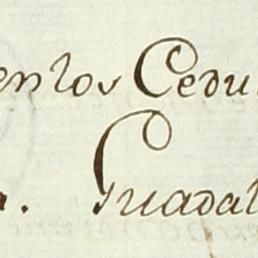 en los Cedu
a. Guadal